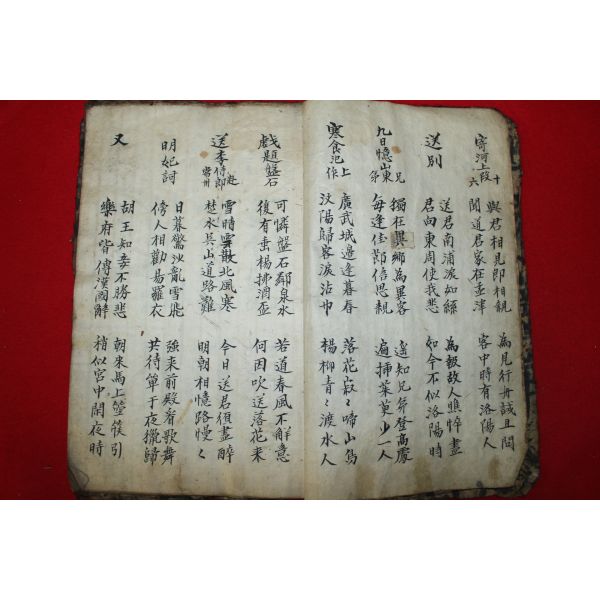 寄河上段十六
與君相見即相親
聞道君家在孟津
為見行舟試且問
客中時有洛陽人
送別
送君南浦淚如絲
君向東周使我悲
為報故人憔悴盡
如今不似洛陽時
九日憶山東兄弟
獨在異鄉為異客
每逢佳節倍思親
遙知兄弟登高處
遍揷茱萸少一人
寒食汜上作
廣武城邊逢暮春
汶陽歸客淚沾巾
落花寂〻啼山鳥
楊柳青〻渡水人
戲題盤石
可憐盤石鄰泉水
復有垂楊拂酒盃
若道春風不解意
何因吹送落花来
送李侍郎赴常州
雪時雲散北風寒
楚水吳山道路難
今日送君須盡醉
明朝相憶路慢〻
明妃詞
日暮驚沙亂雪飛
傍人相勸易羅衣
强来前殿看歌舞
共待單于夜獵歸
又
胡王知妾不勝悲
樂府皆傳漢國辭
朝来馬上箜篌引
梢似宮中閑夜時